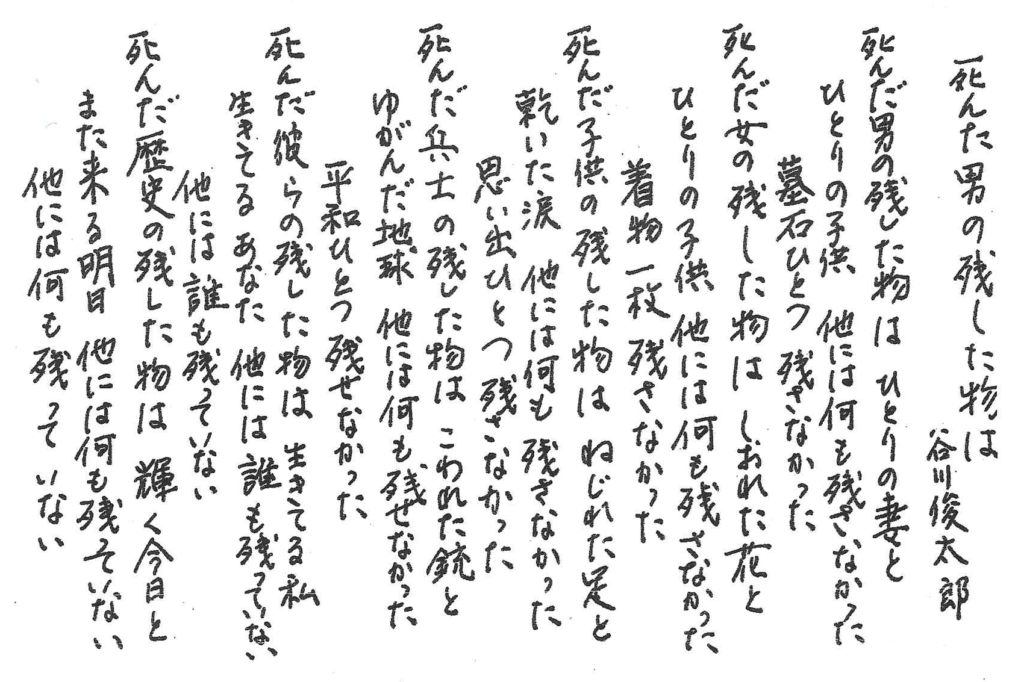 死んだ男の残した物は
谷川俊太郎
死んだ男の残した物は ひとりの妻と
ひとりの子供 他には何も残さなかった
墓石ひとつ 残さなかった
死んだ女の残した物は しおれた花と
ひとりの子供 他には何も残さなかった
着物一枚 残さなかった
死んだ子供の残した物は ねじれた足と
乾いた涙 他には何も 残さなかった
思い出ひとつ 残さなかった
死んだ兵士の残した物は こわれた銃と
ゆがんだ地球 他には何も残せなかった
平和ひとつ 残せなかった
死んだ彼らの残した物は 生きてる私
生きてるあなた 他には誰も残っていない
他には誰も残っていない
死んだ歴史の残した物は 輝く今日と
また来る明日 他には何も残っていない
他には何も残っていない